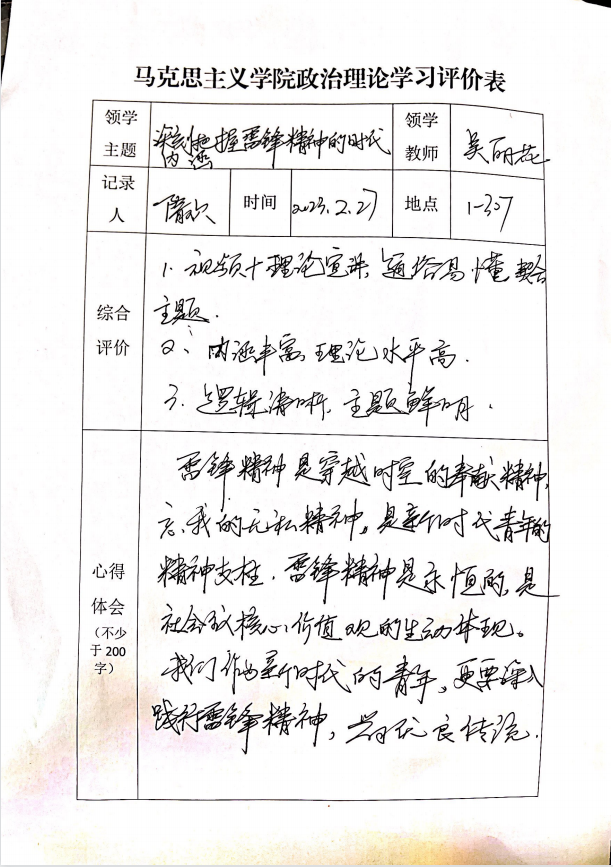 马克思主义学院政治理论学习评价表
领学主题
深刻把握雷锋精神的时代
内涵
领学教师
吴丽
记录人
隋欢
时间
2023.2.27
地点
1-307
综合评价
1. 视频十理论宣讲, 通俗易懂 契合
主题.
2、内涵丰富, 理论水平高.
3. 逻辑清晰, 主题鲜明.
心得体会
(不少于200字)
雷锋精神是穿越时空的奉献精神,
忘我的无私精神, 是新时代青年的
精神支柱. 雷锋精神是永恒的, 是
社会主义核心价值观的生动体现。
我们作为新时代的青年, 更要深入
践行雷锋精神, 优良传统.